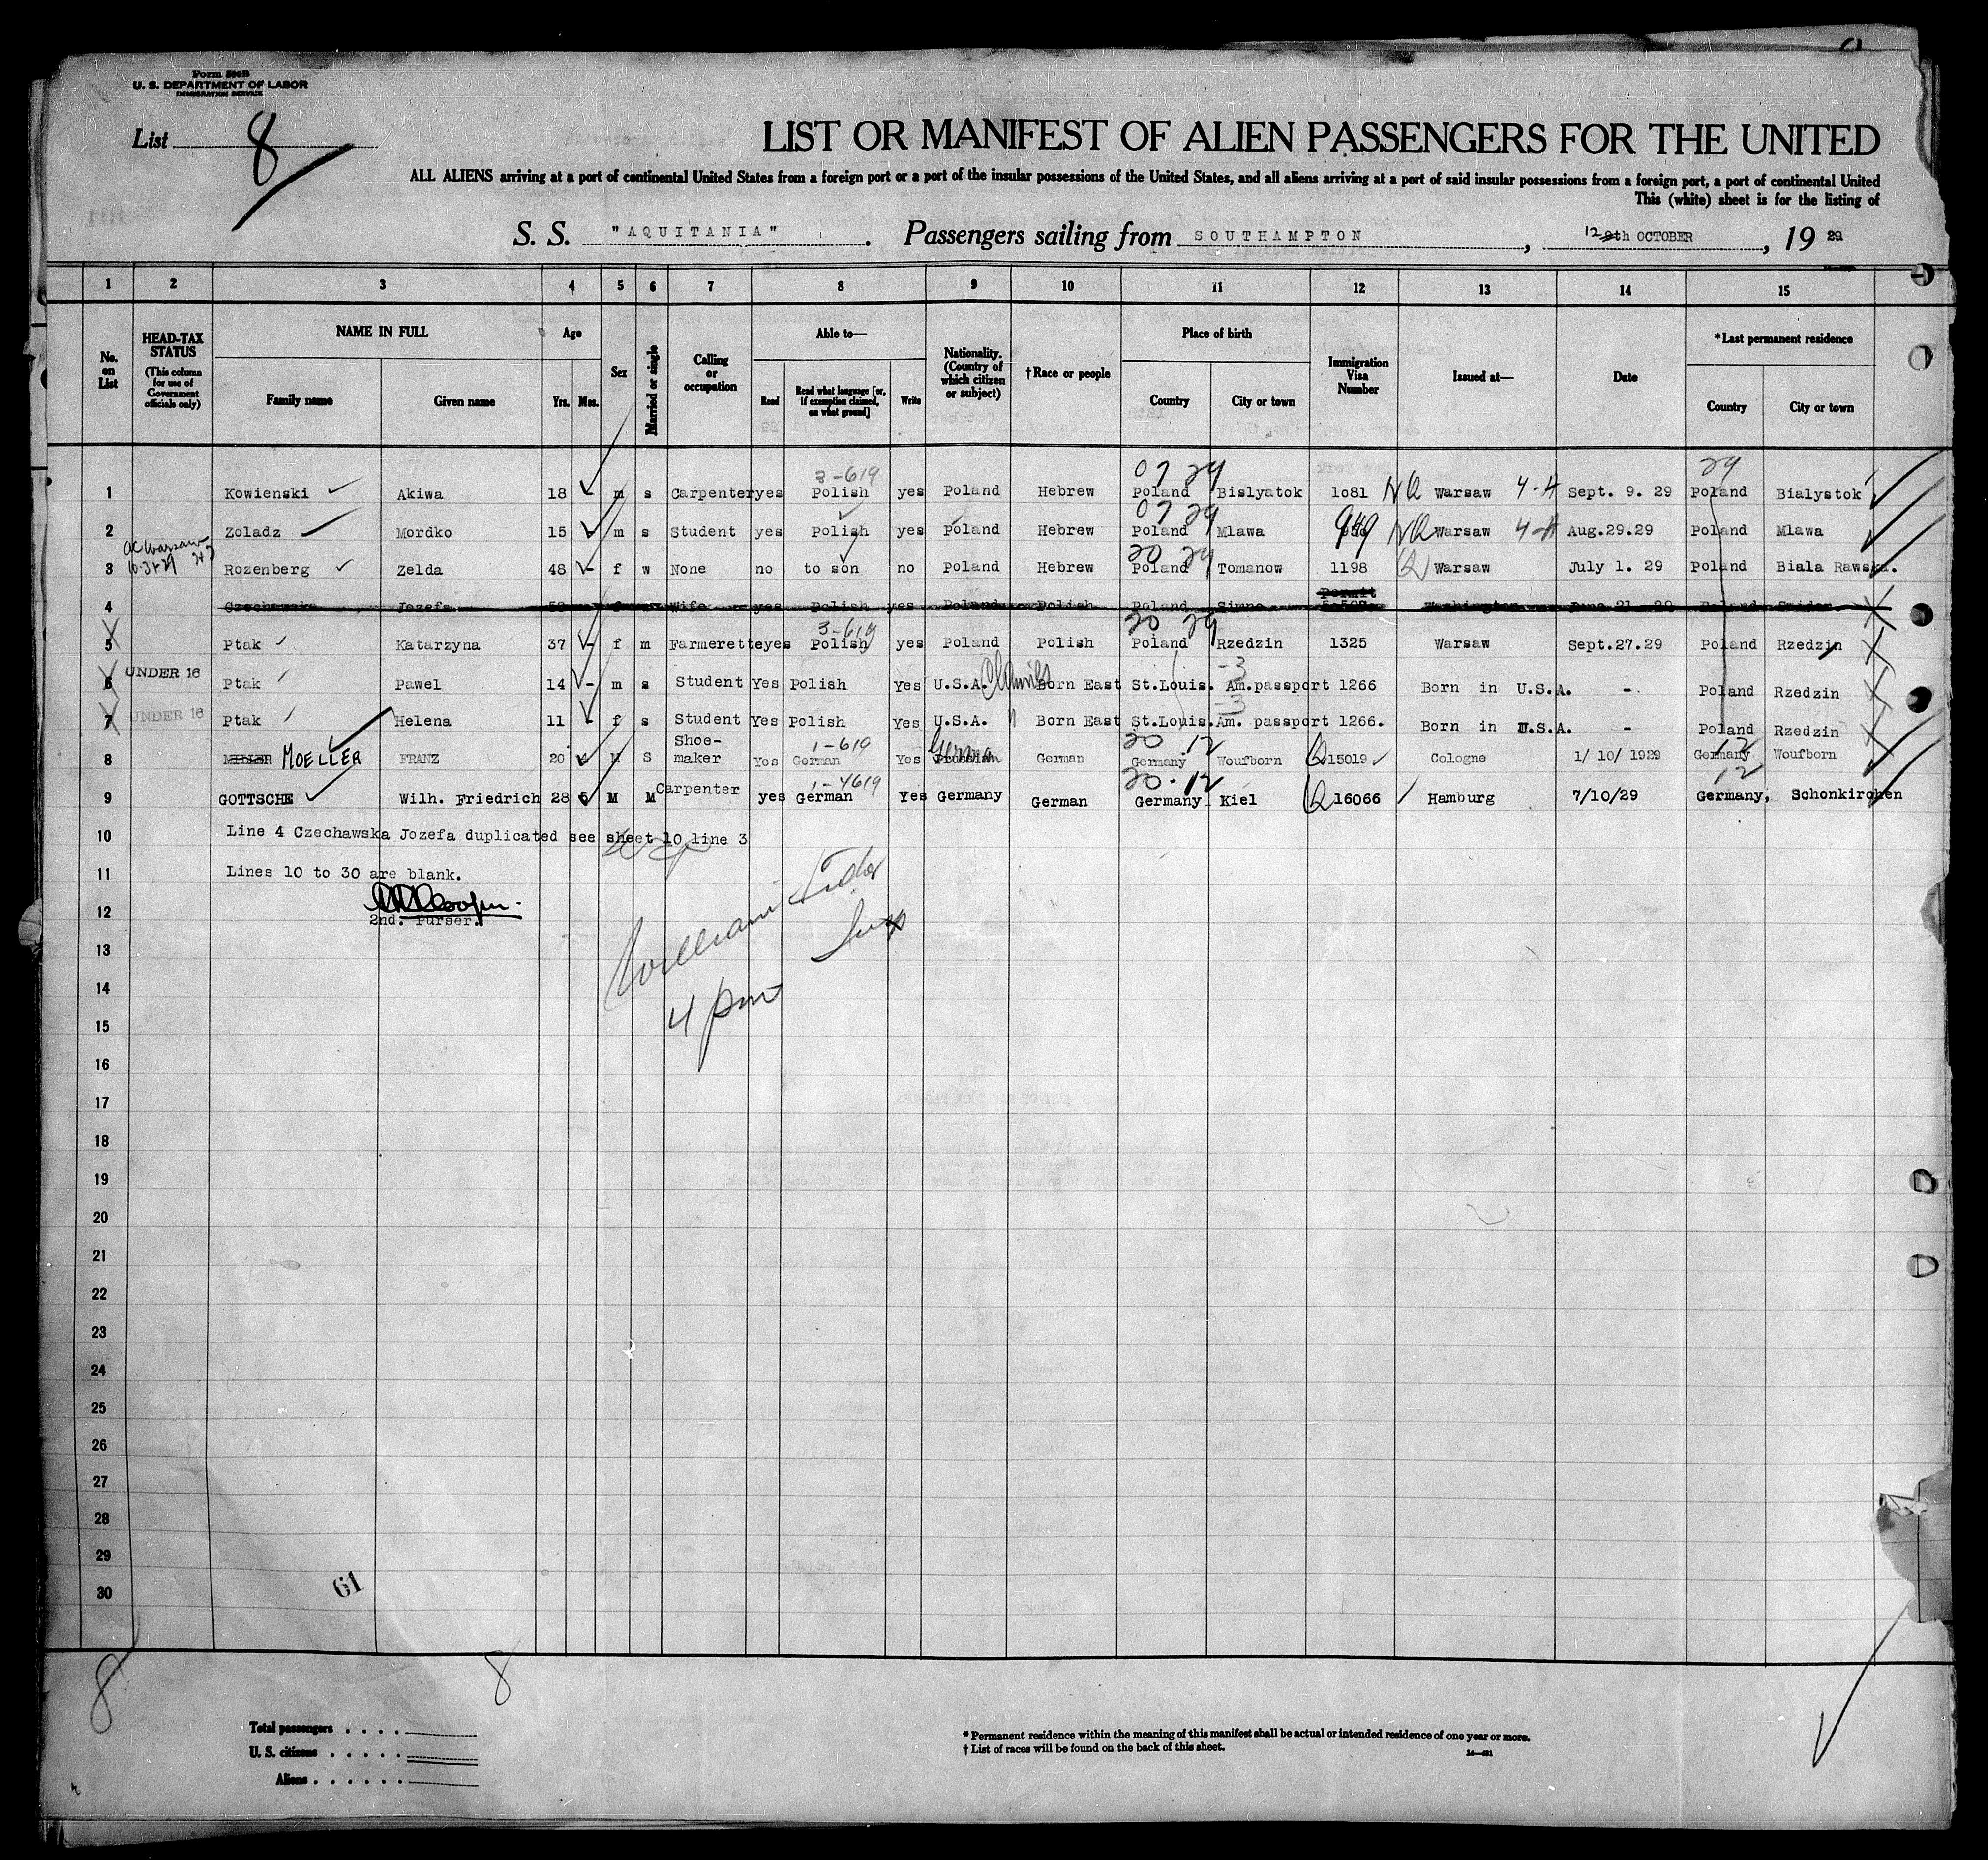 Form 500B
U. S. DEPARTMENT OF LABOR
IMMIGRATION SERVICE
List 8
LIST OR MANIFEST OF ALIEN PASSENGERS FOR THE UNITED
ALL ALIENS arriving at a port of continental United States from a foreign port or a port of the insular possessions of the United States, and all aliens arriving at a port of said insular possessions from a foreign port, a port of continental United
This (white) sheet is for the listing of
S. S. "AQUITANIA". Passengers sailing from SOUTHAMPTON, 12 9th OCTOBER, 19 29
1 2 3 4 5 6 7 8 9 10 11 12 13 14 15
No. on List
HEAD-TAX STATUS (This column for use of Government officials only)
NAME IN FULL
Family name
Given name
Age
Yrs.
Mos.
Sex
Married or single
Calling or occupation
Able to—
Read
Read what language [or, if exemption claimed, on what ground]
Write
Nationality. (Country of which citizen or subject)
†Race or people
Place of birth
Country
City or town
Immigration Visa Number
Issued at—
Date
*Last permanent residence
Country
City or town
3-619 07 29 29
1 Kowienski Akiwa 18 - m s Carpenter yes Polish yes Poland Hebrew Poland Bislyatok 1081 NQ Warsaw 4-A Sept. 9. 29 Poland Bialystok
07 29
2 Zoladz Mordko 15 - m s Student yes Polish yes Poland Hebrew Poland Mlawa 949 NQ Warsaw 4-A Aug.29.29 Poland Mlawa
20 29
3 Rozenberg Zelda 48 - f w None no to son no Poland Hebrew Poland Tomanow 1198 Q Warsaw July 1. 29 Poland Biala Rawska.
Permit
4 Czechawska Jozefa Wife yes Polish yes Poland Polish Poland Washington June 21 29 Poland
3-619 20 29
5 Ptak Katarzyna 37 - f m Farmerette yes Polish yes Poland Polish Poland Rzedzin 1325 Warsaw Sept.27.29 Poland Rzedzin
-3
6 UNDER 16 Ptak Pawel 14 - m s Student Yes Polish Yes U.S.A. Born East St.Louis. Am.passport 1266 Born in U.S.A. - Poland Rzedzin
-3
7 UNDER 16 Ptak Helena 11 - f s Student Yes Polish Yes U.S.A. " Born East St.Louis. Am. passport 1266. Born in U.S.A. - Poland Rzedzin
1-619 20 12 12
8 MOELLER FRANZ 20 M S Shoe-maker Yes German Yes German German Germany Woufborn Q 15019 Cologne 1/ 10/ 1929 Germany Woufborn
1-4619 20-12 12
9 GOTTSCHE Wilh. Friedrich 28 5 M M Carpenter yes German Yes Germany German Germany Kiel Q 16066 Hamburg 7/10/29 Germany, Schonkirchen
10 Line 4 Czechawska Jozefa duplicated see sheet 10 line 3
11 Lines 10 to 30 are blank.
12 2nd. Purser.
13
14
4 pm
15
16
17
18
19
20
21
22
23
24
25
26
27
28
29
30
61
8 8
Total passengers . . . .
U. S. citizens . . . . .
Aliens . . . . . .
* Permanent residence within the meaning of this manifest shall be actual or intended residence of one year or more.
† List of races will be found on the back of this sheet.